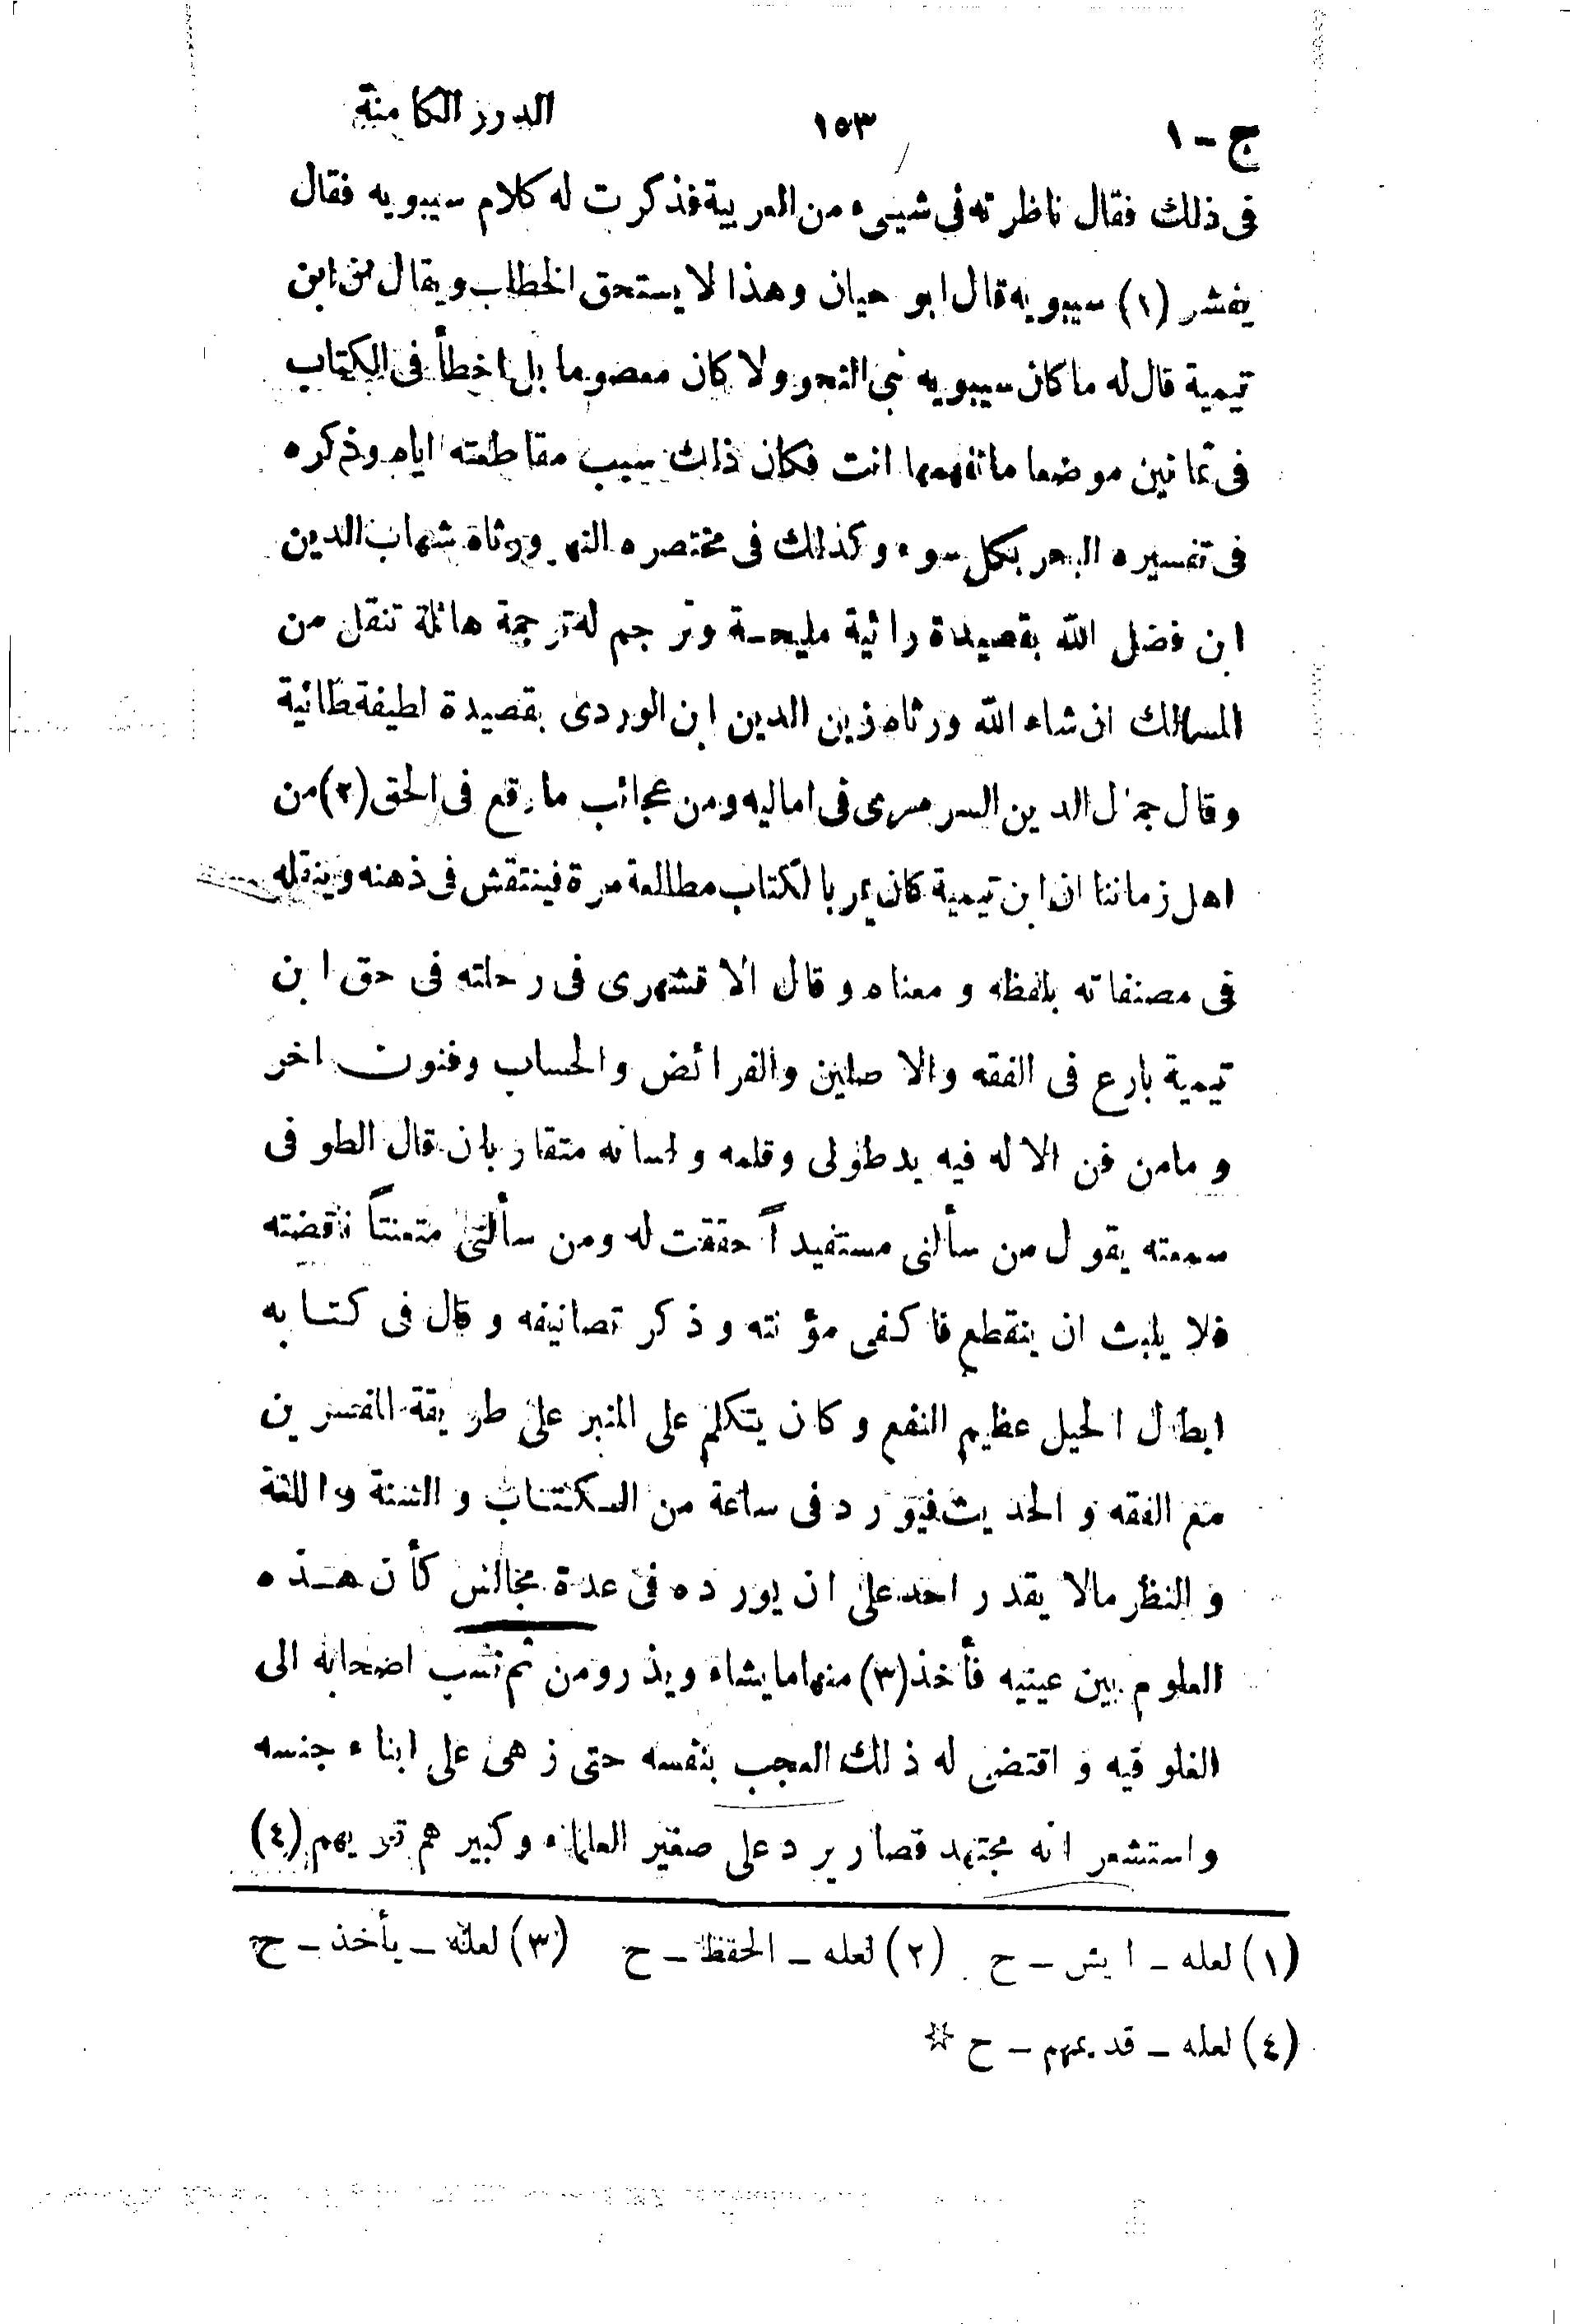 ج - ١ ١٥٣ الدرر الكامنة
فى ذلك فقال ناظرته فى شيىء من العربية فذكرت له كلام سيبويه فقال
يفشر (١) سيبويه قال ابو حيان وهذا لا يستحق الخطاب ويقال ان ابن
تيمية قال له ما كان سيبويه نبى النحو ولا كان معصوما بل اخطأ فى الكتاب
فى ثمانين موضعا ما تفهمها انت فكان ذلك سبب مقاطعته اياه وذكره
فى تفسيره البحر بكل سوء وكذلك فى مختصره النهر ورثاه شهاب الدين
ابن فضل الله بقصيدة رائية مليحة وترجم له ترجمة هائلة تنقل من
المسالك ان شاء الله ورثاه زين الدين ابن الوردى بقصيدة لطيفة طائية
وقال جمال الدين السرمرى فى اماليه ومن عجائب ما وقع فى الحق (٢) من
اهل زماننا ان ابن تيمية كان يمر بالكتاب مطالعة مرة فينتقش فى ذهنه وينقله
فى مصنفاته بلفظه و معناه وقال الاقشهرى فى رحلته فى حق ابن
تيمية بارع فى الفقه والاصلين والفرائض والحساب وفنون اخر
وما من فن الا له فيه يد طولى وقلمه ولسانه متقاربان قال الطوفى
سمعته يقول من سألنى مستفيداً حققت له ومن سألنى متعنتاً ناقضته
فلا يلبث ان ينقطع فاكفى مؤنته وذكر تصانيفه وقال فى كتابه
ابطال الحيل عظيم النفع وكان يتكلم على المنبر على طريقة المفسرين
مع الفقه والحديث فيورد فى ساعة من الكتاب والسنة واللغة
والنظر مالا يقدر احد على ان يورده فى عدة مجالس كأن هذه
العلوم بين عينيه فأخذ (٣) منها ما يشاء ويذر ومن ثم نسب اصحابه الى
الغلو فيه واقتضى له ذلك العجب بنفسه حتى زهى على ابناء جنسه
واستشعر انه مجتهد فصار يرد على صغير العلماء وكبيرهم (٤)
(١) لعله - ايش - ح (٢) لعله - الحفظ - ح (٣) لعله - يأخذ - ح
(٤) لعله - قديمهم - ح *